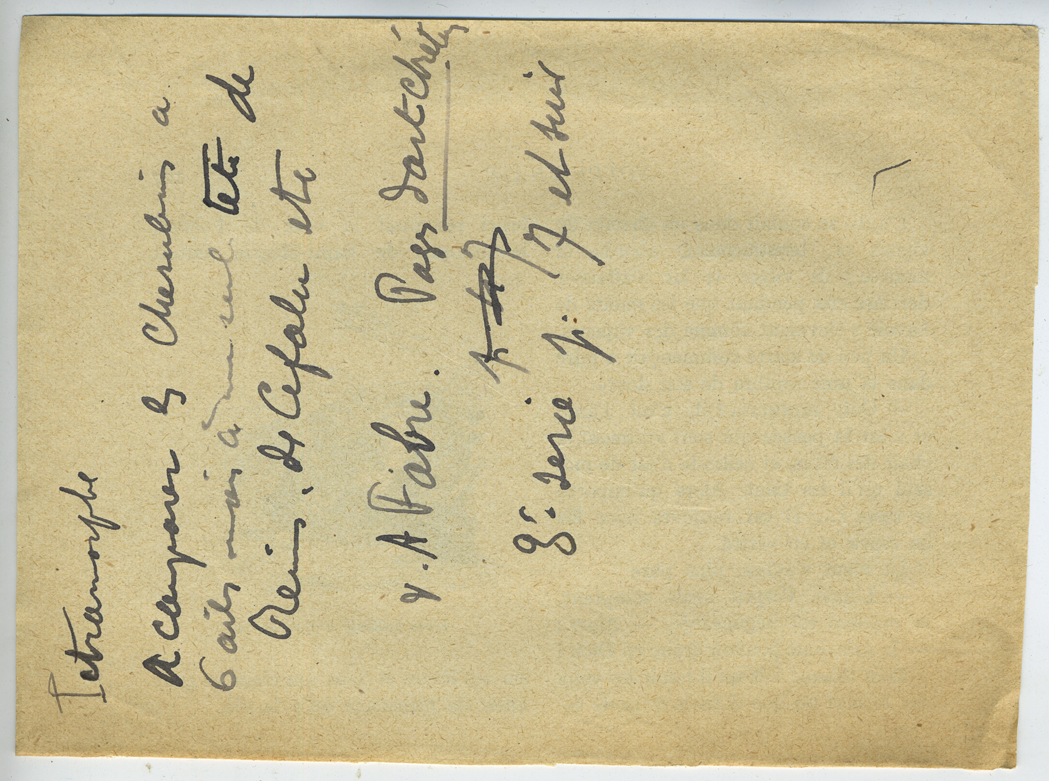 Tetramorphe
A comparer les Cherubins a
6 ailes mais à un seul tete de
Reims, de Cefalu etc
v. A Fabre. Pages d'art chrétien
3e: serie p: 17 et suiv